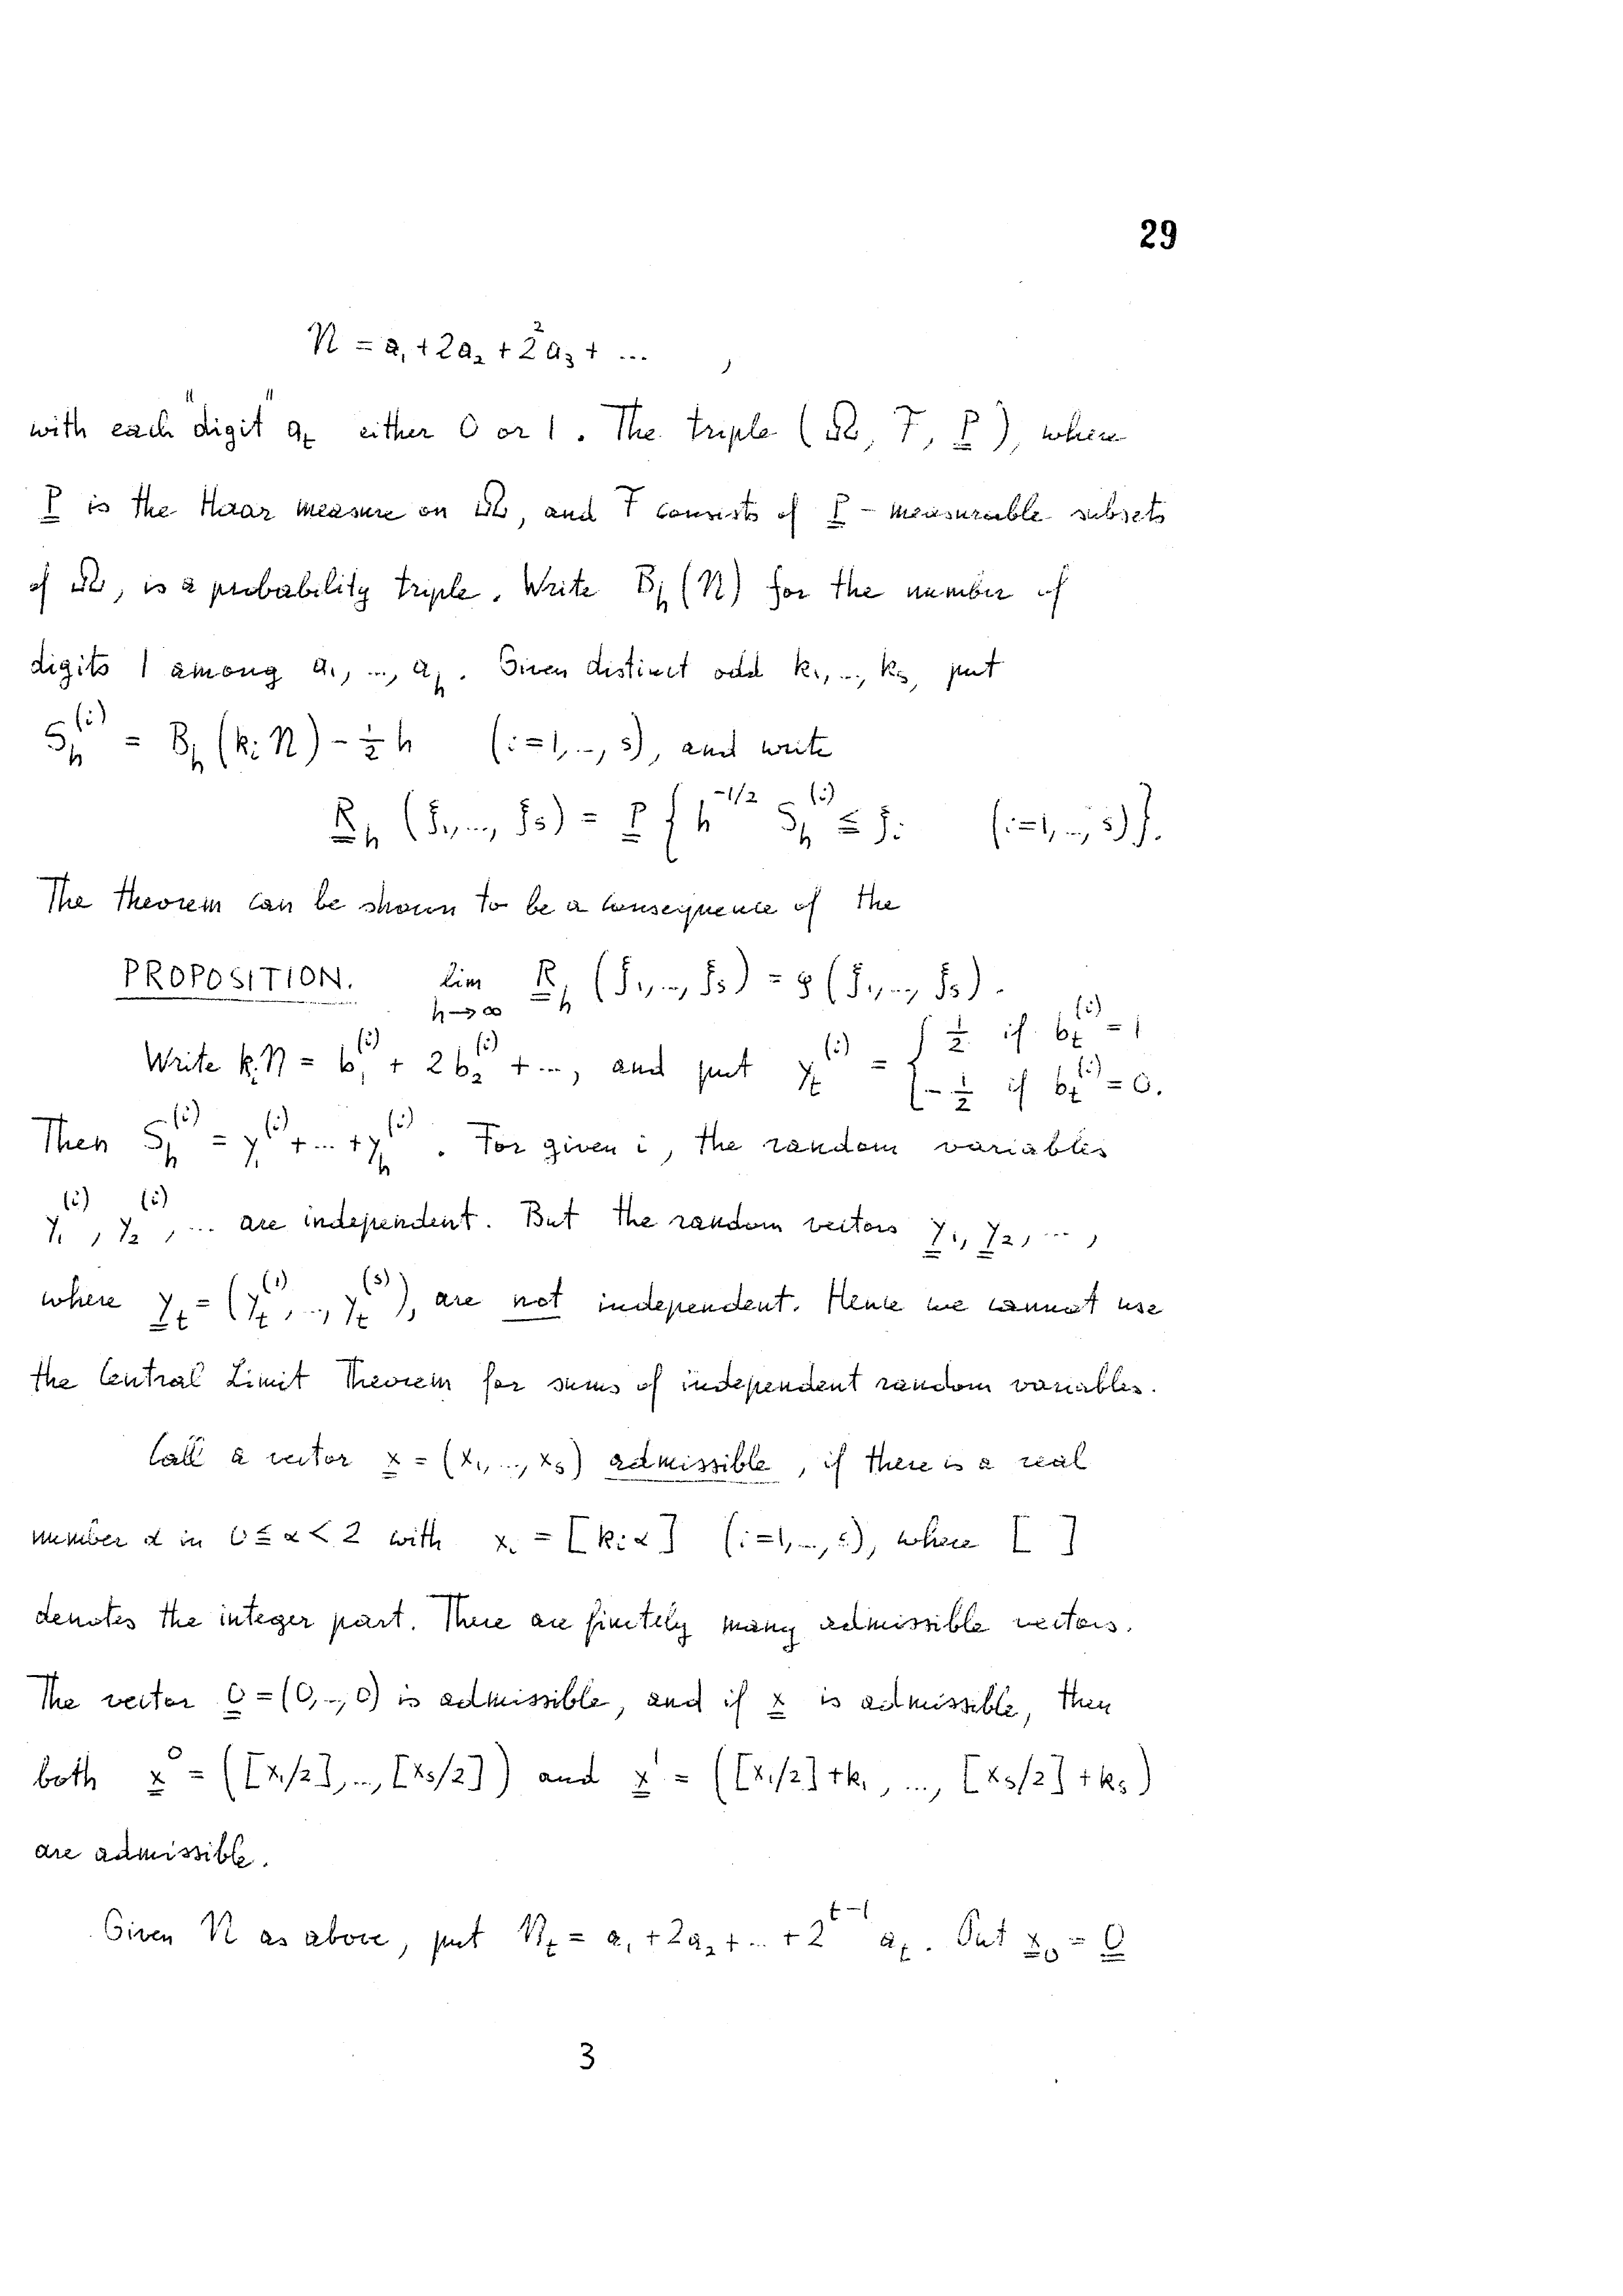 29
n = a₁ + 2a₂ + 2²a₃ + ... ,
with each "digit" aₜ either 0 or 1. The triple (Ω, F, P), where
P is the Haar measure on Ω, and F consists of P-measurable subsets
of Ω, is a probability triple. Write Bₕ(n) for the number of
digits 1 among a₁, ..., aₕ. Given distinct odd k₁, ..., kₛ, put
Sₕ⁽ⁱ⁾ = Bₕ(kᵢ n) - ½h (i=1, ..., s), and write
Rₕ(ξ₁, ..., ξₛ) = P{h^{-1/2} Sₕ⁽ⁱ⁾ ≤ ξᵢ (i=1, ..., s)}.
The theorem can be shown to be a consequence of the
PROPOSITION. lim_{h→∞} Rₕ(ξ₁, ..., ξₛ) = g(ξ₁, ..., ξₛ).
Write kᵢn = b₁⁽ⁱ⁾ + 2b₂⁽ⁱ⁾ + ..., and put yₜ⁽ⁱ⁾ = { ½ if bₜ⁽ⁱ⁾ = 1
{ -½ if bₜ⁽ⁱ⁾ = 0.
Then Sₕ⁽ⁱ⁾ = y₁⁽ⁱ⁾ + ... + yₕ⁽ⁱ⁾. For given i, the random variables
y₁⁽ⁱ⁾, y₂⁽ⁱ⁾, ... are independent. But the random vectors y₁, y₂, ... ,
where yₜ = (yₜ⁽¹⁾, ..., yₜ⁽ˢ⁾), are not independent. Hence we cannot use
the Central Limit Theorem for sums of independent random variables.
Call a vector x = (x₁, ..., xₛ) admissible, if there is a real
number α in 0 ≤ α < 2 with xᵢ = [kᵢα] (i=1, ..., s), where [ ]
denotes the integer part. There are finitely many admissible vectors.
The vector 0 = (0, ..., 0) is admissible, and if x is admissible, then
both x⁰ = ([x₁/2], ..., [xₛ/2]) and x¹ = ([x₁/2]+k₁, ..., [xₛ/2]+kₛ)
are admissible.
Given n as above, put nₜ = a₁ + 2a₂ + ... + 2^{t-1} aₜ. Put x₀ = 0
3